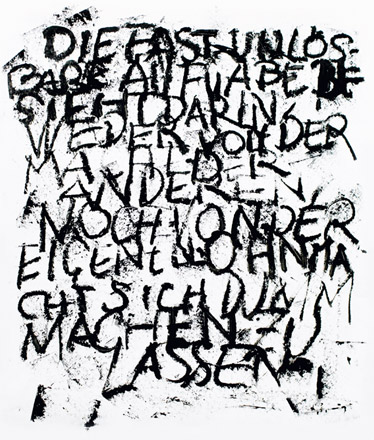 DIE FAST UNLÖS-
BARE AUFGABE BE
STEHT DARIN,
WEDER VON DER
MACHT DER
ANDEREN
NOCH VON DER
EIGENEN OHNMA
CHT SICH DUMM
MACHEN ZU
LASSEN